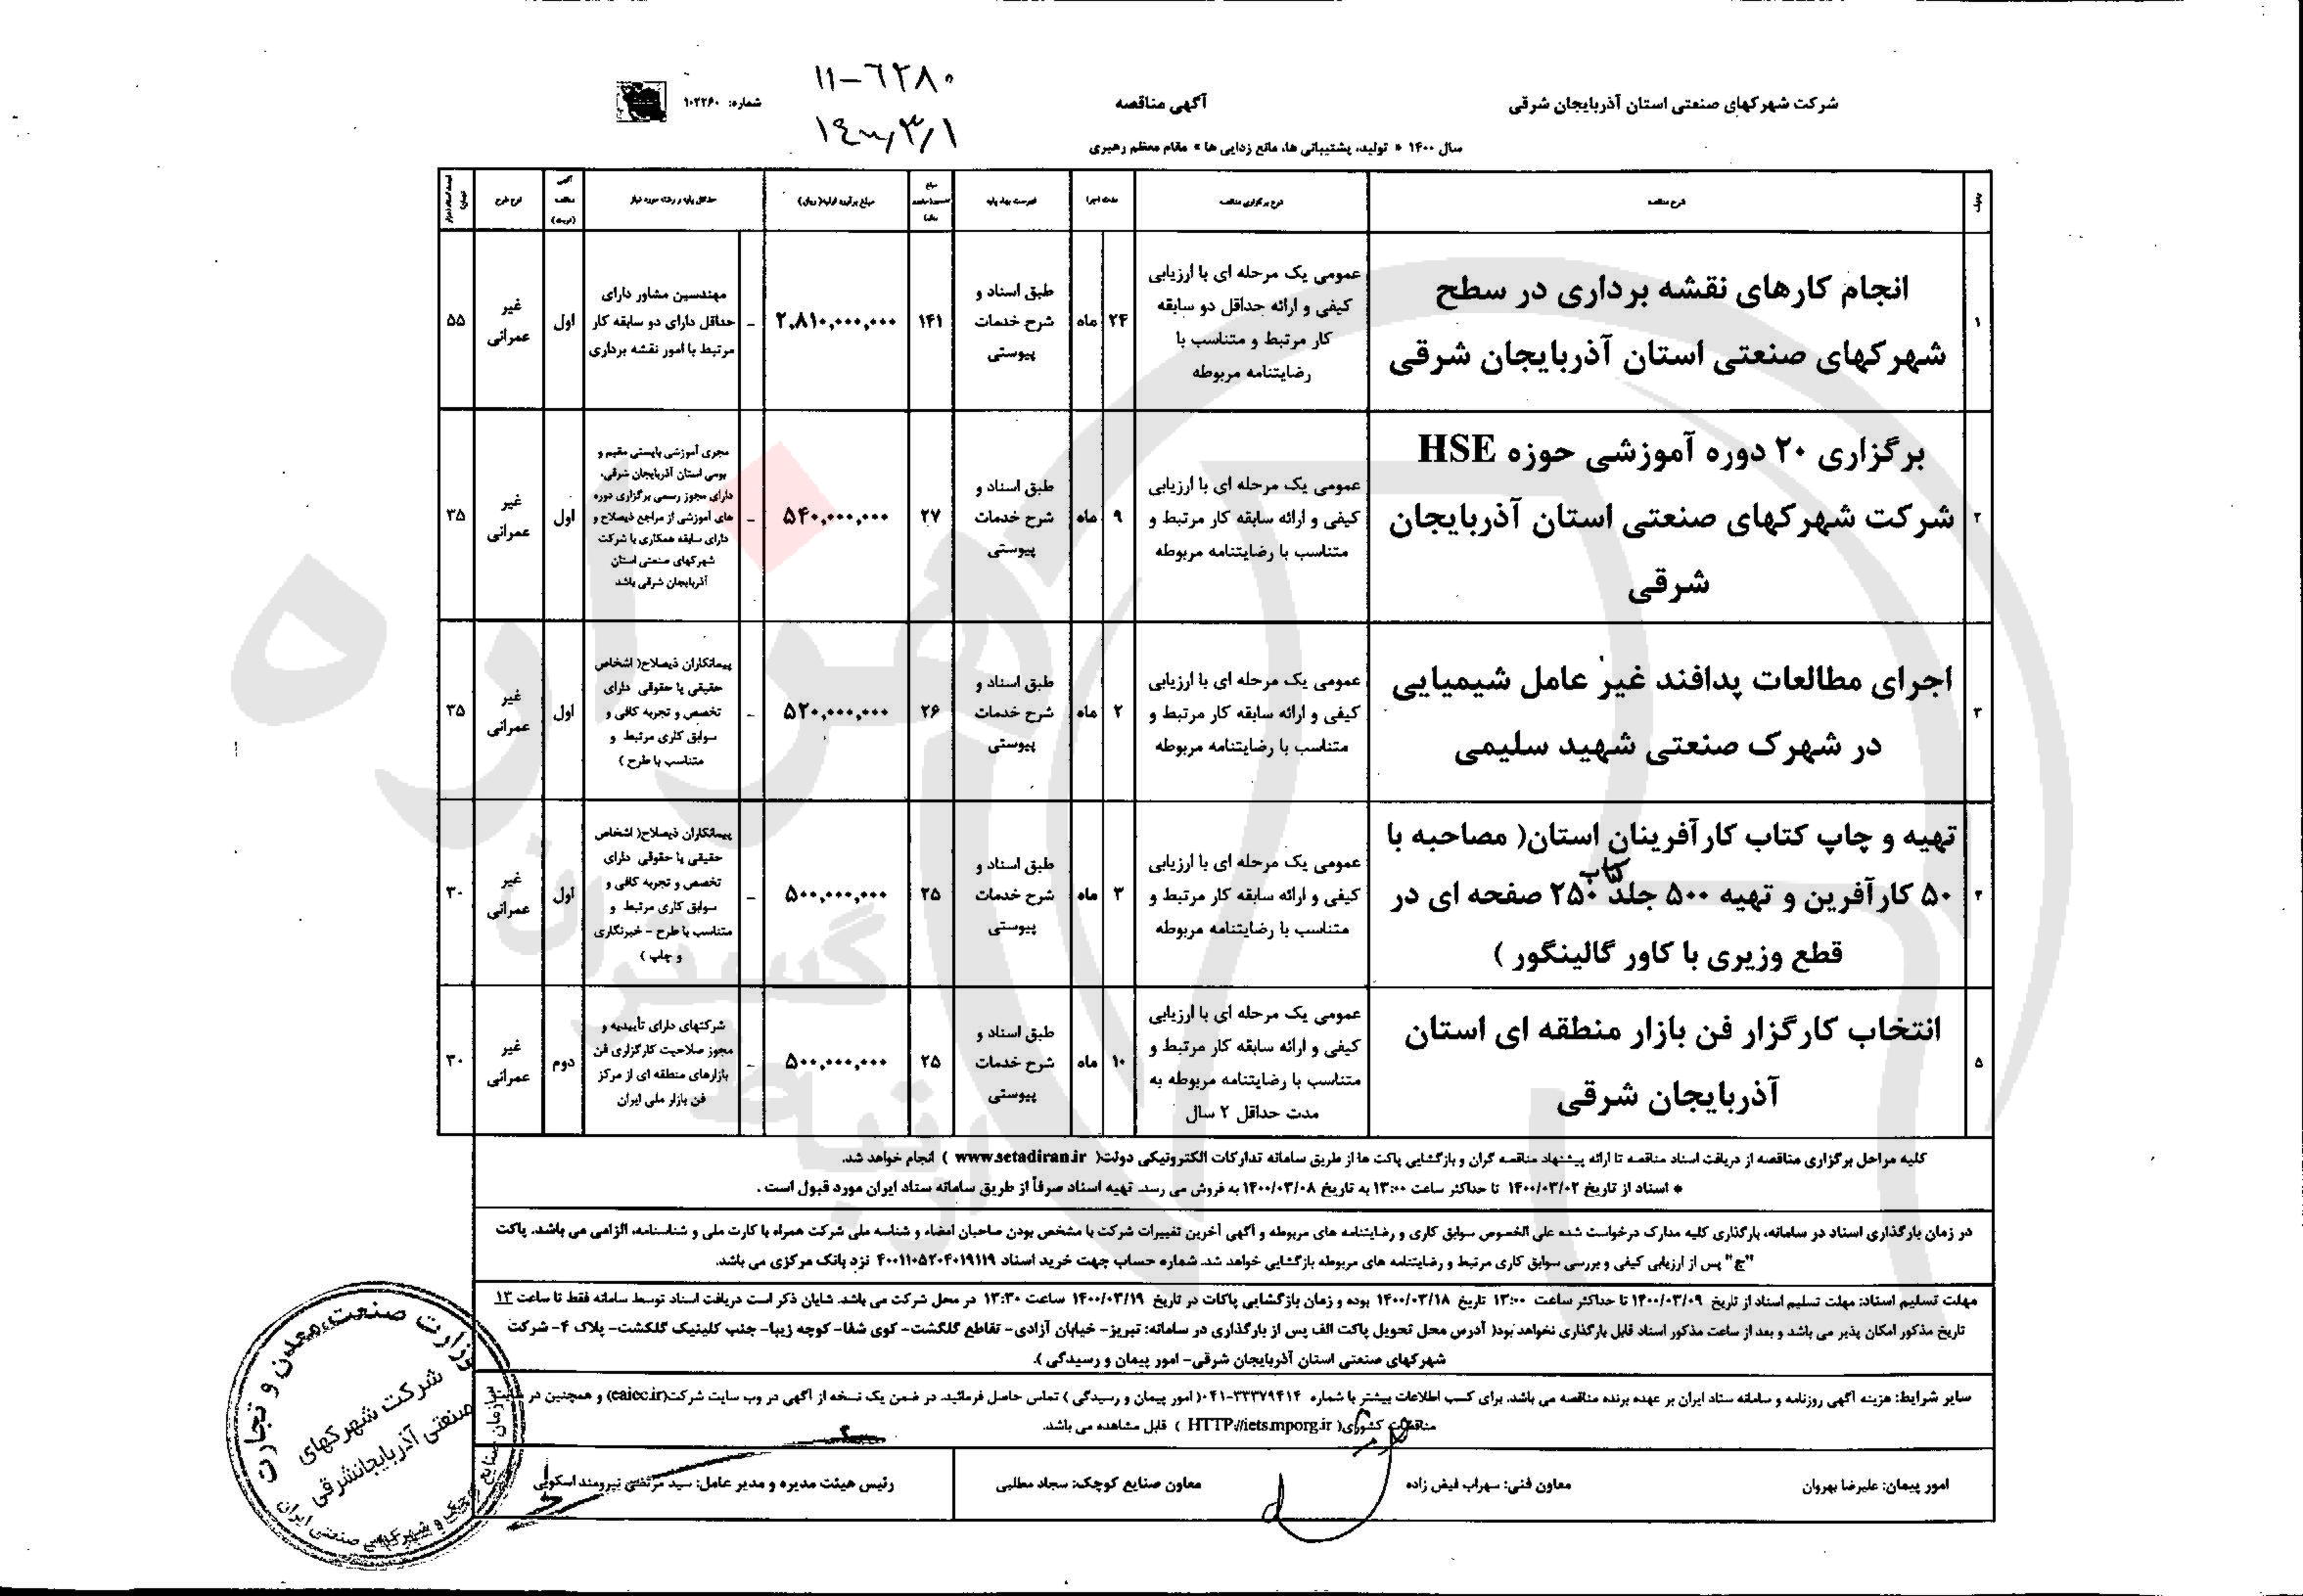 ۱۱-۶۲۸۰
شرکت شهرکهای صنعتی استان آذربایجان شرقی
آگهی مناقصه
شماره: ۱۰۲۲۶۰
۱۴۰۰/۳/۱
سال ۱۴۰۰ « تولید، پشتیبانی ها، مانع زدایی ها» مقام معظم رهبری
ردیف
شرح مناقصه
شرح برگزاری مناقصه
مدت اجرا
فهرست بهاء پایه
مبلغ برآورد اولیه( ریال)
حداقل پایه و رشته مورد نیاز
آگهی مناقصه (نوبت)
نوع طرح
۱
انجام کارهای نقشه برداری در سطح
شهرکهای صنعتی استان آذربایجان شرقی
عمومی یک مرحله ای با ارزیابی
کیفی و ارائه حداقل دو سابقه
کار مرتبط و متناسب با
رضایتنامه مربوطه
۲۴
ماه
طبق اسناد و
شرح خدمات
پیوستی
۱۴۱
۲,۸۱۰,۰۰۰,۰۰۰
-
مهندسین مشاور دارای
حداقل دارای دو سابقه کار
مرتبط با امور نقشه برداری
اول
غیر
عمرانی
۵۵
۲
برگزاری ۲۰ دوره آموزشی حوزه HSE
شرکت شهرکهای صنعتی استان آذربایجان
شرقی
عمومی یک مرحله ای با ارزیابی
کیفی و ارائه سابقه کار مرتبط و
متناسب با رضایتنامه مربوطه
۹
ماه
طبق اسناد و
شرح خدمات
پیوستی
۲۷
۵۴۰,۰۰۰,۰۰۰
-
مجری آموزشی بایستی مقیم و
بومی استان آذربایجان شرقی،
دارای مجوز رسمی برگزاری دوره
های آموزشی از مراجع ذیصلاح و
دارای سابقه همکاری با شرکت
شهرکهای صنعتی استان
آذربایجان شرقی باشد
اول
غیر
عمرانی
۳۵
۳
اجرای مطالعات پدافند غیر عامل شیمیایی
در شهرک صنعتی شهید سلیمی
عمومی یک مرحله ای با ارزیابی
کیفی و ارائه سابقه کار مرتبط و
متناسب با رضایتنامه مربوطه
۲
ماه
طبق اسناد و
شرح خدمات
پیوستی
۲۶
۵۲۰,۰۰۰,۰۰۰
-
پیمانکاران ذیصلاح( اشخاص
حقیقی یا حقوقی دارای
تخصص و تجربه کافی و
سوابق کاری مرتبط و
متناسب با طرح )
اول
غیر
عمرانی
۳۵
۴
تهیه و چاپ کتاب کارآفرینان استان( مصاحبه با
۵۰ کارآفرین و تهیه ۵۰۰ جلد کتاب ۲۵۰ صفحه ای در
قطع وزیری با کاور گالینگور )
عمومی یک مرحله ای با ارزیابی
کیفی و ارائه سابقه کار مرتبط و
متناسب با رضایتنامه مربوطه
۳
ماه
طبق اسناد و
شرح خدمات
پیوستی
۲۵
۵۰۰,۰۰۰,۰۰۰
-
پیمانکاران ذیصلاح( اشخاص
حقیقی یا حقوقی دارای
تخصص و تجربه کافی و
سوابق کاری مرتبط و
متناسب با طرح - خبرنگاری
و چاپ )
اول
غیر
عمرانی
۳۰
۵
انتخاب کارگزار فن بازار منطقه ای استان
آذربایجان شرقی
عمومی یک مرحله ای با ارزیابی
کیفی و ارائه سابقه کار مرتبط و
متناسب با رضایتنامه مربوطه به
مدت حداقل ۲ سال
۱۰
ماه
طبق اسناد و
شرح خدمات
پیوستی
۲۵
۵۰۰,۰۰۰,۰۰۰
-
شرکتهای دارای تأییدیه و
مجوز صلاحیت کارگزاری فن
بازارهای منطقه ای از مرکز
فن بازار ملی ایران
دوم
غیر
عمرانی
۳۰
کلیه مراحل برگزاری مناقصه از دریافت اسناد مناقصه تا ارائه پیشنهاد مناقصه گران و بازگشایی پاکت ها از طریق سامانه تدارکات الکترونیکی دولت( www.setadiran.ir ) انجام خواهد شد.
* اسناد از تاریخ ۱۴۰۰/۰۳/۰۲ تا حداکثر ساعت ۱۳:۰۰ به تاریخ ۱۴۰۰/۰۳/۰۸ به فروش می رسد. تهیه اسناد صرفاً از طریق سامانه ستاد ایران مورد قبول است .
در زمان بارگذاری اسناد در سامانه، بارگذاری کلیه مدارک درخواست شده علی الخصوص سوابق کاری و رضایتنامه های مربوطه و آگهی آخرین تغییرات شرکت با مشخص بودن صاحبان امضاء و شناسه ملی شرکت همراه با کارت ملی و شناسنامه، الزامی می باشد. پاکت
"ج" پس از ارزیابی کیفی و بررسی سوابق کاری مرتبط و رضایتنامه های مربوطه بازگشایی خواهد شد. شماره حساب جهت خرید اسناد ۴۰۰۱۱۰۵۲۰۴۰۱۹۱۱۹ نزد بانک مرکزی می باشد.
مهلت تسلیم اسناد: مهلت تسلیم اسناد از تاریخ ۱۴۰۰/۰۳/۰۹ تا حداکثر ساعت ۱۳:۰۰ تاریخ ۱۴۰۰/۰۳/۱۸ بوده و زمان بازگشایی پاکات در تاریخ ۱۴۰۰/۰۳/۱۹ ساعت ۱۳:۳۰ در محل شرکت می باشد. شایان ذکر است دریافت اسناد توسط سامانه فقط تا ساعت ۱۳
تاریخ مذکور امکان پذیر می باشد و بعد از ساعت مذکور اسناد قابل بارگذاری نخواهد بود( آدرس محل تحویل پاکت الف پس از بارگذاری در سامانه: تبریز- خیابان آزادی- تقاطع گلگشت- کوی شفا- کوچه زیبا- جنب کلینیک گلگشت- پلاک ۴- شرکت
شهرکهای صنعتی استان آذربایجان شرقی- امور پیمان و رسیدگی ).
سایر شرایط: هزینه آگهی روزنامه و سامانه ستاد ایران بر عهده برنده مناقصه می باشد. برای کسب اطلاعات بیشتر با شماره ۳۳۳۷۹۴۱۴-۰۴۱( امور پیمان و رسیدگی ) تماس حاصل فرمائید. در ضمن یک نسخه از آگهی در وب سایت شرکت(eaiec.ir) و همچنین در سایت
مناقصات کشوری( HTTP://iets.mporg.ir ) قابل مشاهده می باشد.
امور پیمان: علیرضا بهروان
معاون فنی: سهراب فیض زاده
معاون صنایع کوچک: سجاد مطلبی
رئیس هیئت مدیره و مدیر عامل: سید مرتضی نیرومند اسکویی
وزارت صنعت، معدن و تجارت
شرکت شهرکهای
صنعتی آذربایجانشرقی
سازمان صنایع کوچک و شهرکهای صنعتی ایران
هزاره
گستران
ارتباط